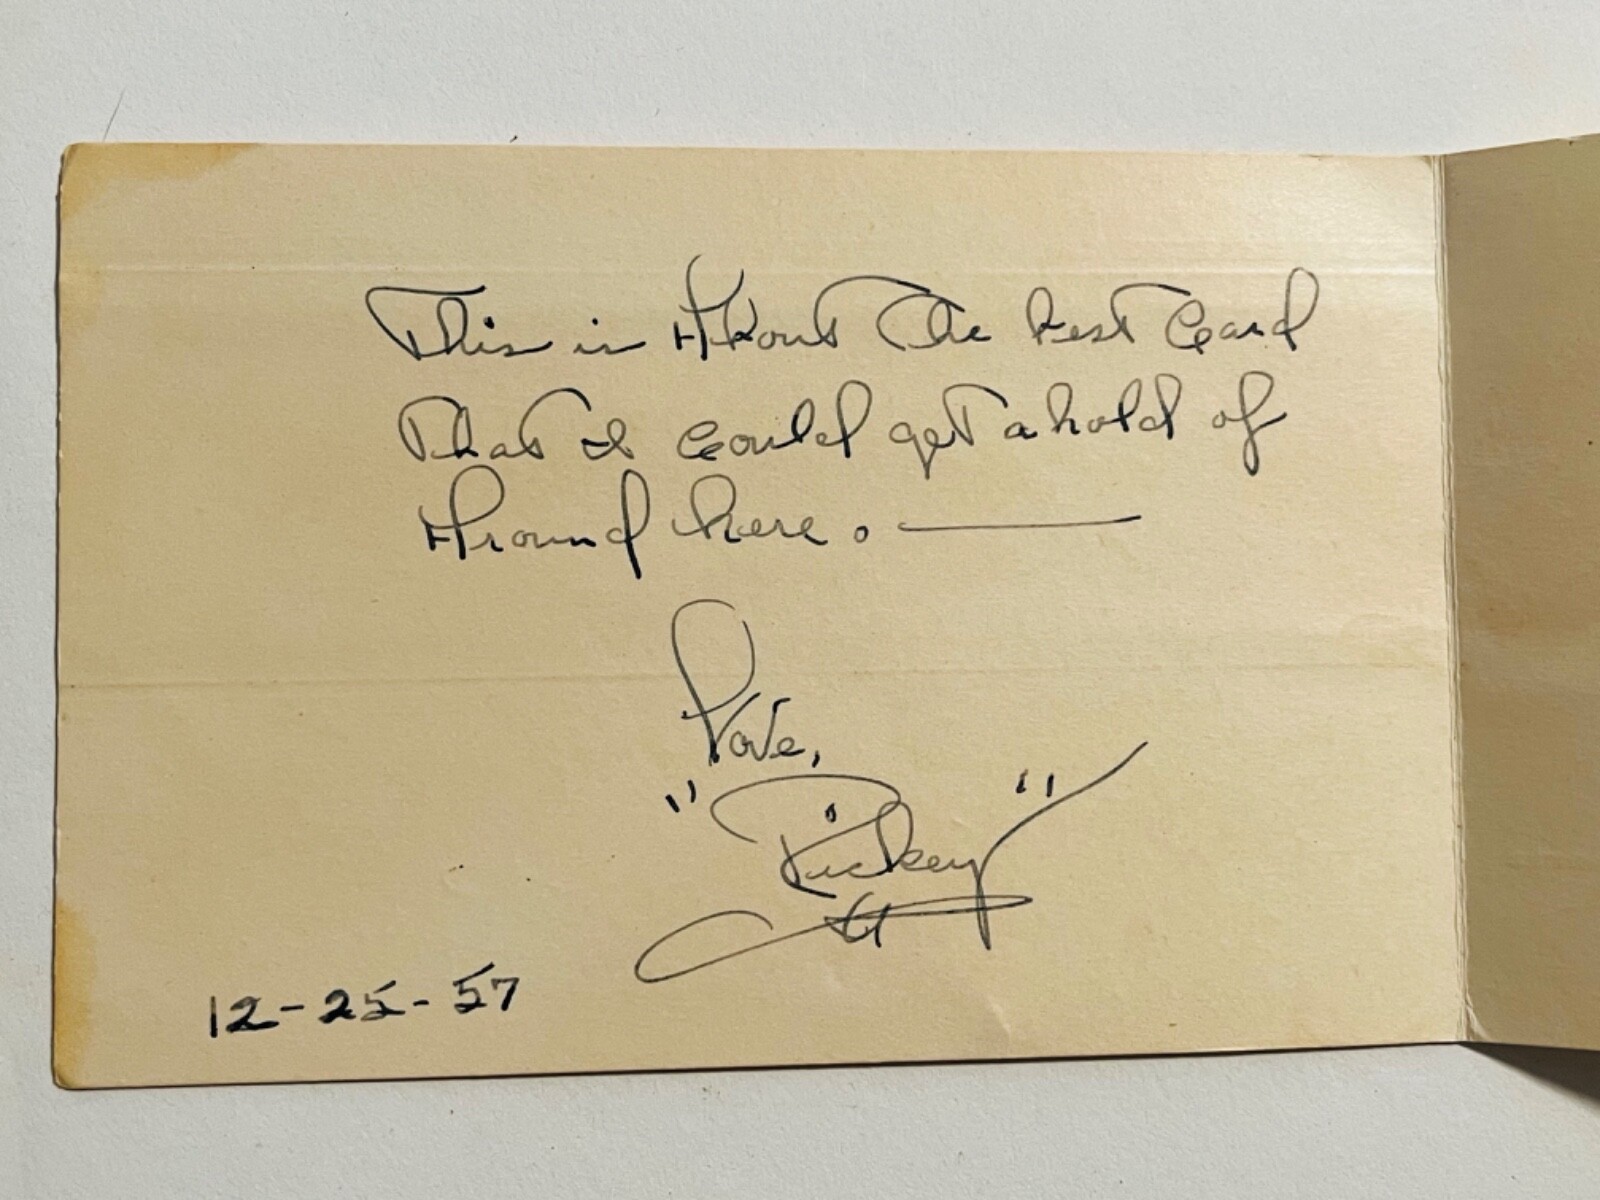 This is About The best Card
That I Could get a hold of
Around here. ———
Love,
"Rickey"
12-25-57